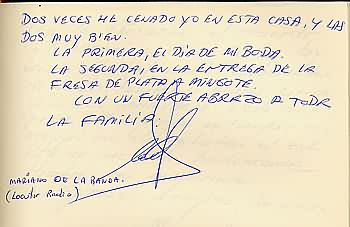 DOS VECES HE CENADO YO EN ESTA CASA, Y LAS
DOS MUY BIEN.
LA PRIMERA, EL DIA DE MI BODA.
LA SEGUNDA, EN LA ENTREGA DE LA
FRESA DE PLATA A MINGOTE.
CON UN FUERTE ABRAZO A TODA
LA FAMILIA.
MARIANO DE LA BANDA.
(Locutor Radio)